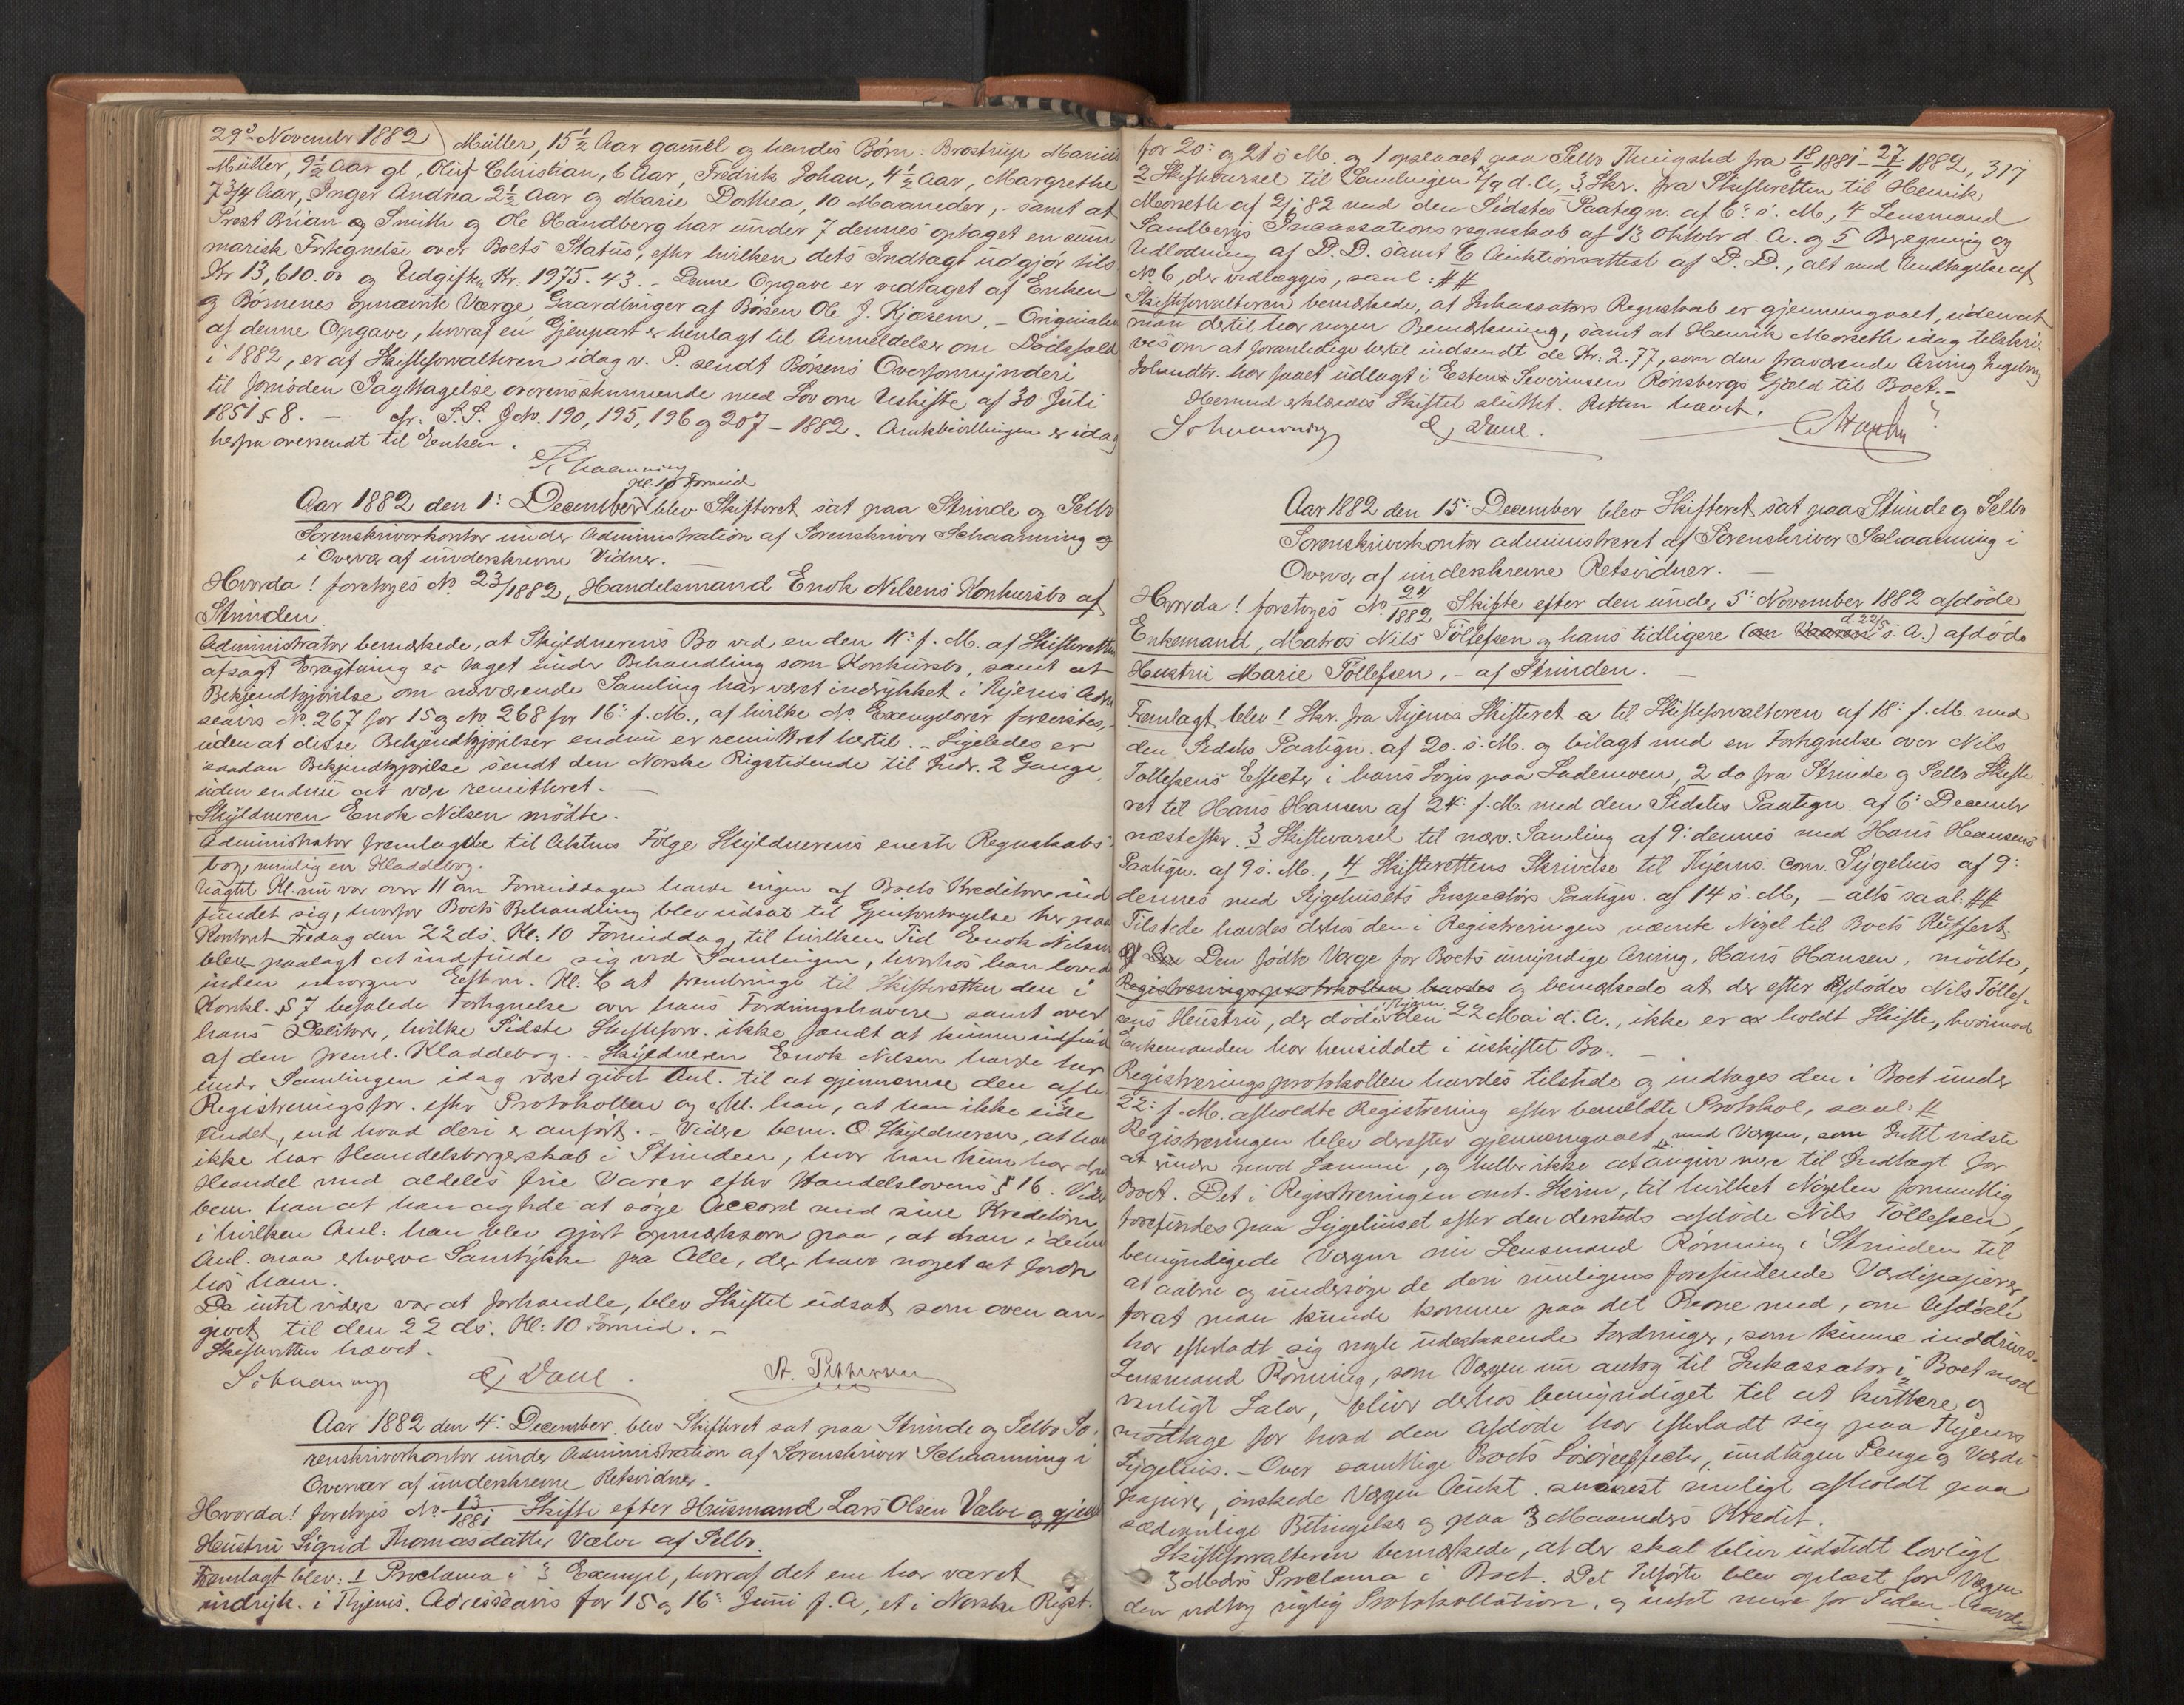 29de November 1882) Müller, 15 1/2 Aar gamel og hendes Børn: Brostrup Marius
Müller, 9 1/2 Aar gl, Oluf Christian, 6 Aar, Fredrik Johan, 4 1/2 Aar, Margrethe
7 3/4 Aar, Inger Andrea 2 1/2 Aar og Marie Dorthea, 10 Maaneder, - samt at
Prost Brian og Smith og Ole Handberg har under 7 dennes optaget en sum
marisk Fortegnelse over Boets Status, efter hvilken dets Indtægt udgjør tils
Kr 13,610.00 og Udgifter Kr. 1975.43. - Denne Opgave er vedtaget af Enken
og Børnenes opnævnte Værge Gaardbruger af Børsen Ole J. Kjøsem. - Originalen
af denne Opgave, hvoraf en Gjenpart er henlagt til Anmeldelser om Dødsfald
i 1882, er af Skifteforvalteren idag v. P. sendt Børsens Overformynderi
til fornøden Iagttagelse overensstemmende med Lov om Uskifte af 30 Juli
1851 § 8. - cfr. S.P. J.No. 190, 195, 196 og 207 - 1882. Amtsbevillingen er idag
herfra oversendt til Enken.
Schaanning
Kl. 10 Formid
Aar 1882 den 1: December blev Skifteret sat paa Strinde og Selbo
Sorenskriverkontor under Administration af Sorenskriver Schaanning og
i Overvær af underskrevne Vidner.
Hvorda! foretoges No. 23/1882, Handelsmand Enok Nilsens Konkursbo af
Strinden.
Administrator bemærkede, at Skyldnerens Bo ved en den 11: f. M. af Skifteretten
afsagt Eragtning er taget under Behandling som Konkursbo, samt at
Bekjendtgjørelse om nærværende Samling har været indrykket i Thjems Adres
seavis No. 267 for 15 og No. 268 for 16: f. M., af hvilke No. Exemplarer forevistes,
uden at disse Bekjendtgjørelser endnu er remitteret hertil. - Ligeledes er
saadan Bekjendtgjørelse sendt den Norske Rigstidende til Indr. 2 Gange,
uden endnu at være remitteret. -
Skyldneren Enok Nilsen mødte.
Administrator fremlagde til Aktens Følge Skyldnerens eneste Regnskabs
bog, nemlig en Kladdebog.
Uagtet Kl. nu var over 11 om Formiddagen havde ingen af Boets Kreditorer ind
fundet sig, hvorfor Boets Behandling blev udsat til Gjenforetagelse her paa
Kontoret Fredag den 22 ds. Kl: 10 Formiddag, til hvilken Tid Enok Nilsen
blev paalagt at indfinde sig ved Samlingen, hvorhos han lovede
inden imorgen Efterm. Kl: 6 at frembringe til Skifteretten den i
Konkl. § 7 befalede Fortegnelse over hans Fordringshavere samt over
hans Debitorer, hvilke Sidste Skifteforv. ikke fandt at kunne udfinde
af den freml. Kladdebog. - Skyldneren Enok Nilsen havde her
under Samlingen idag været givet Anl. til at gjennemse den afh.
Registreringsfor. efter Protokollen og erkl. han, at han ikke eiede
Andet, end hvad deri er anført. - Videre bem. O. Skyldneren, at han
ikke har Handelsborgerskab i Strinden, hvor han kun har drevet
Handel med aldeles frie Varer efter Handelslovens § 16. Videre
bem. han at han agtede at søge Accord med sine Kreditorer,
i hvilken Anl: han blev gjort opmærksom paa, at han i denne
Anl. maa erhverve Samtykke fra Alle, der have noget at fordre
hos ham.
Da intet videre var at forhandle, blev Skiftet udsat som oven an-
givet til den 22 ds. Kl: 10 Formid. -
Skifteretten hævet.
Schaanning Dahl. A. Pettersen
Aar 1882 den 4: December blev Skifteret sat paa Strinde og Selbo So-
renskriverkontor under Administration af Sorenskriver Schaanning i
Overvær af underskrevne Retsvidner.
Hvorda! foretoges No. 13/1881 Skifte efter Husmand Lars Olsen Vælve og gjenl
Hustru Sigrid Thomasdatter Vælve af Selbo.
Fremlagt blev: 1 Proclama i 3 Exempl, hvoraf det ene har været
indryk. i Thjems. Adresseavis for 15 og 16: Juni f. A, et i Norske Rigst.
for 20: og 21 s. M. og 1 opslaaet paa Selbo Thingsted fra 18/6 1881 - 27/11 1882, 317
2 Skiftevarsel til Samlingen 7/9 d. A, 3 Skr. fra Skifteretten til Henrik
Morseth af 2/ 82 med den Sidstes Paategn. af 6: s. M., 4 Lensmand
Sandbergs Incassationsregnskab af 13 Oktober d. A. og 5 Beregning og
Udlodning af D. D. samt 6 Auktionsattest af D. D., alt med Undtagelse af
No. 6, der vedlægges, saal: ##
Skifteforvalteren bemærkede, at Inkassators Regnskab er gjennemgaaet, uden at
man dertil har nogen Bemærkning, samt at Henrik Morseth idag tilskri-
ves om at foranledige hertil indsendt de Kr: 2.77, som den fraværende Arving Ingebrig
Johansdtr. har faaet udlagt i Esten Severinsen Rønsbergs Gjæld til Boet. -
Hermed erklæredes Skiftet sluttet. Retten hævet.
Schaanning Dahl.
Aar 1882 den 15: December blev Skifteret sat paa Strinde og Selbo
Sorenskriverkontor administreret af Sorenskriver Schaanning i
Overvær af underskrevne Retsvidner. -
Hvorda! foretoges No. 24/1882 Skifte efter den under 5: November 1882 afdøde
Enkemand, Matros Nils Tøllefsen og hans tidligere (d. 22/5 s. A.) afdøde
Hustru Marie Tøllefsen, - af Strinden. -
Fremlagt blev 1 Skr. fra Thjems Skifteret a til Skifteforvalteren af 18: f. M. med
den Sidstes Paategn. af 20. s. M. og bilagt med en Fortegnelse over Nils
Tøllefsens Effecter i hans Logis paa Lademoen, 2 do fra Strinde og Selbo Skifte
ret til Hans Hansen af 24: f. M. med den Sidstes Paategn. af 6: December
næstefter. 3 Skiftevarsel til nærv. Samling af 9: dennes med Hans Hansens
Paategn. af 9 s. M., 4 Skifterettens Skrivelse til Thjems com. Sygehus af 9:
dennes med Sygehusets Inspectørs Paategn. af 14 s. M, - alts saal: ##
Tilstede havdes derhos den i Registreringen nævnte Nøgel til Boets Kuffert.
Den fødte Værge for Boets umyndige Arving, Hans Hansen, mødte,
Registreringsprotokollen havdes og bemærkede at der efter Afdødes Nils Tøllef-
sens Hustru, der døde i Thjem den 22 Mai d. A., ikke er holdt Skifte, hvorimod
Enkemanden har hensiddet i uskiftet Bo. -
Registreringsprotokollen havdes tilstede og indtages den i Boet under
22: f. M. afholdte Registrering efter bemeldte Protokol, saal: #
Registreringen blev derefter gjennemgaaet med Værgen, som Intet vidste
at erindre mod Samme, og heller ikke at angive mere til Indtægt for
Boet. Det i Registreringen omt. Skrin, til hvilket Nøglen formentlig
forefindes paa Sygehuset efter den dersteds afdøde Nils Tøllefsen,
bemyndigede Værgen nu Lensmand Rønning i Strinden til
at aabne og undersøge de deri muligens forefindende Værdipapirer,
forat man kunde komme paa det Rene med, om Afdøde
har efterladt sig nogle udestaaende Fordringer, som kunne inddrives.
Lensmand Rønning, som Værgen nu antog til Inkassator i Boet mod
vanligt Salær, bliver derhos bemyndiget til at kvittere og
modtage for hvad den Afdøde har efterladt sig paa Thjems
Sygehus. - Over samtlige Boets Løsøreeffecter, undtagen Penge og Værdi-
papirer, ønskede Værgen Aukt. snarest muligt afholdt paa
sædvanlige Betingelser og paa 3 Maaneders Kredit.
Skifteforvalteren bemærkede, at der skal blive udstedt lovligt
3 Mdrs Proclama i Boet. Det Tilførte blev oplæst for Værgen
der vedtog rigtig Protokollation, og intet mere for Tiden havde